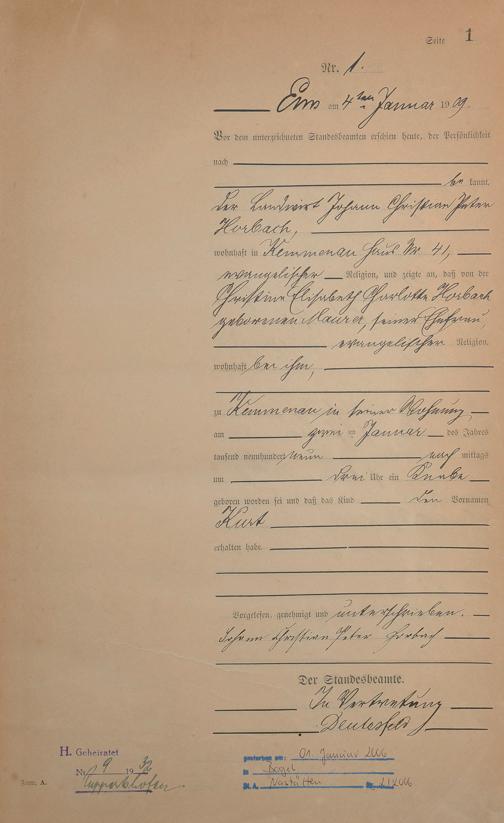 Seite 1
Nr. 1.
Ems am 4ten Januar 1909.
Vor dem unterzeichneten Standesbeamten erschien heute, der Persönlichkeit
nach
be kannt,
der Landwirt Johann Christian Peter
Horbach,
wohnhaft in Kemmenau Haus Nr. 41,
evangelischer Religion, und zeigte an, daß von der
Christine Elisabeth Charlotte Horbach
geborenen Maurer, seiner Ehefrau,
evangelischer Religion,
wohnhaft bei ihm,
zu Kemmenau in seiner Wohnung
am zwei ten Januar des Jahres
tausend neunhundert neun nach mittags
um drei Uhr ein Knabe
geboren worden sei und daß das Kind den Vornamen
Kurt
erhalten habe.
Vorgelesen, genehmigt und unterschrieben.
Johann Christian Peter Horbach
Der Standesbeamte.
In Vertretung
H. Geheiratet
Nr. 9 1932
gestorben am: 01. Januar 2006
in Bogel
St.A. Nastätten Nr.
Form. A.